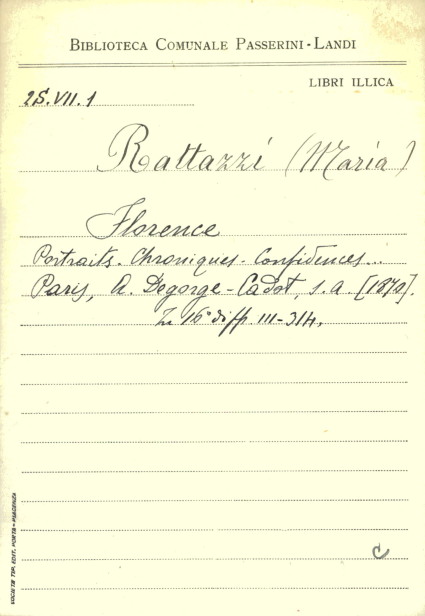 BIBLIOTECA COMUNALE PASSERINI-LANDI
LIBRI ILLICA
25.VII.1
Rattazzi (Maria)
Florence
Portraits. Chroniques. Confidences...
Paris, A. Degorge-Cadot, s.a. [1870].
16° III-314.
SOCIETÀ TIP. EDIT. PORTA - PIACENZA
C